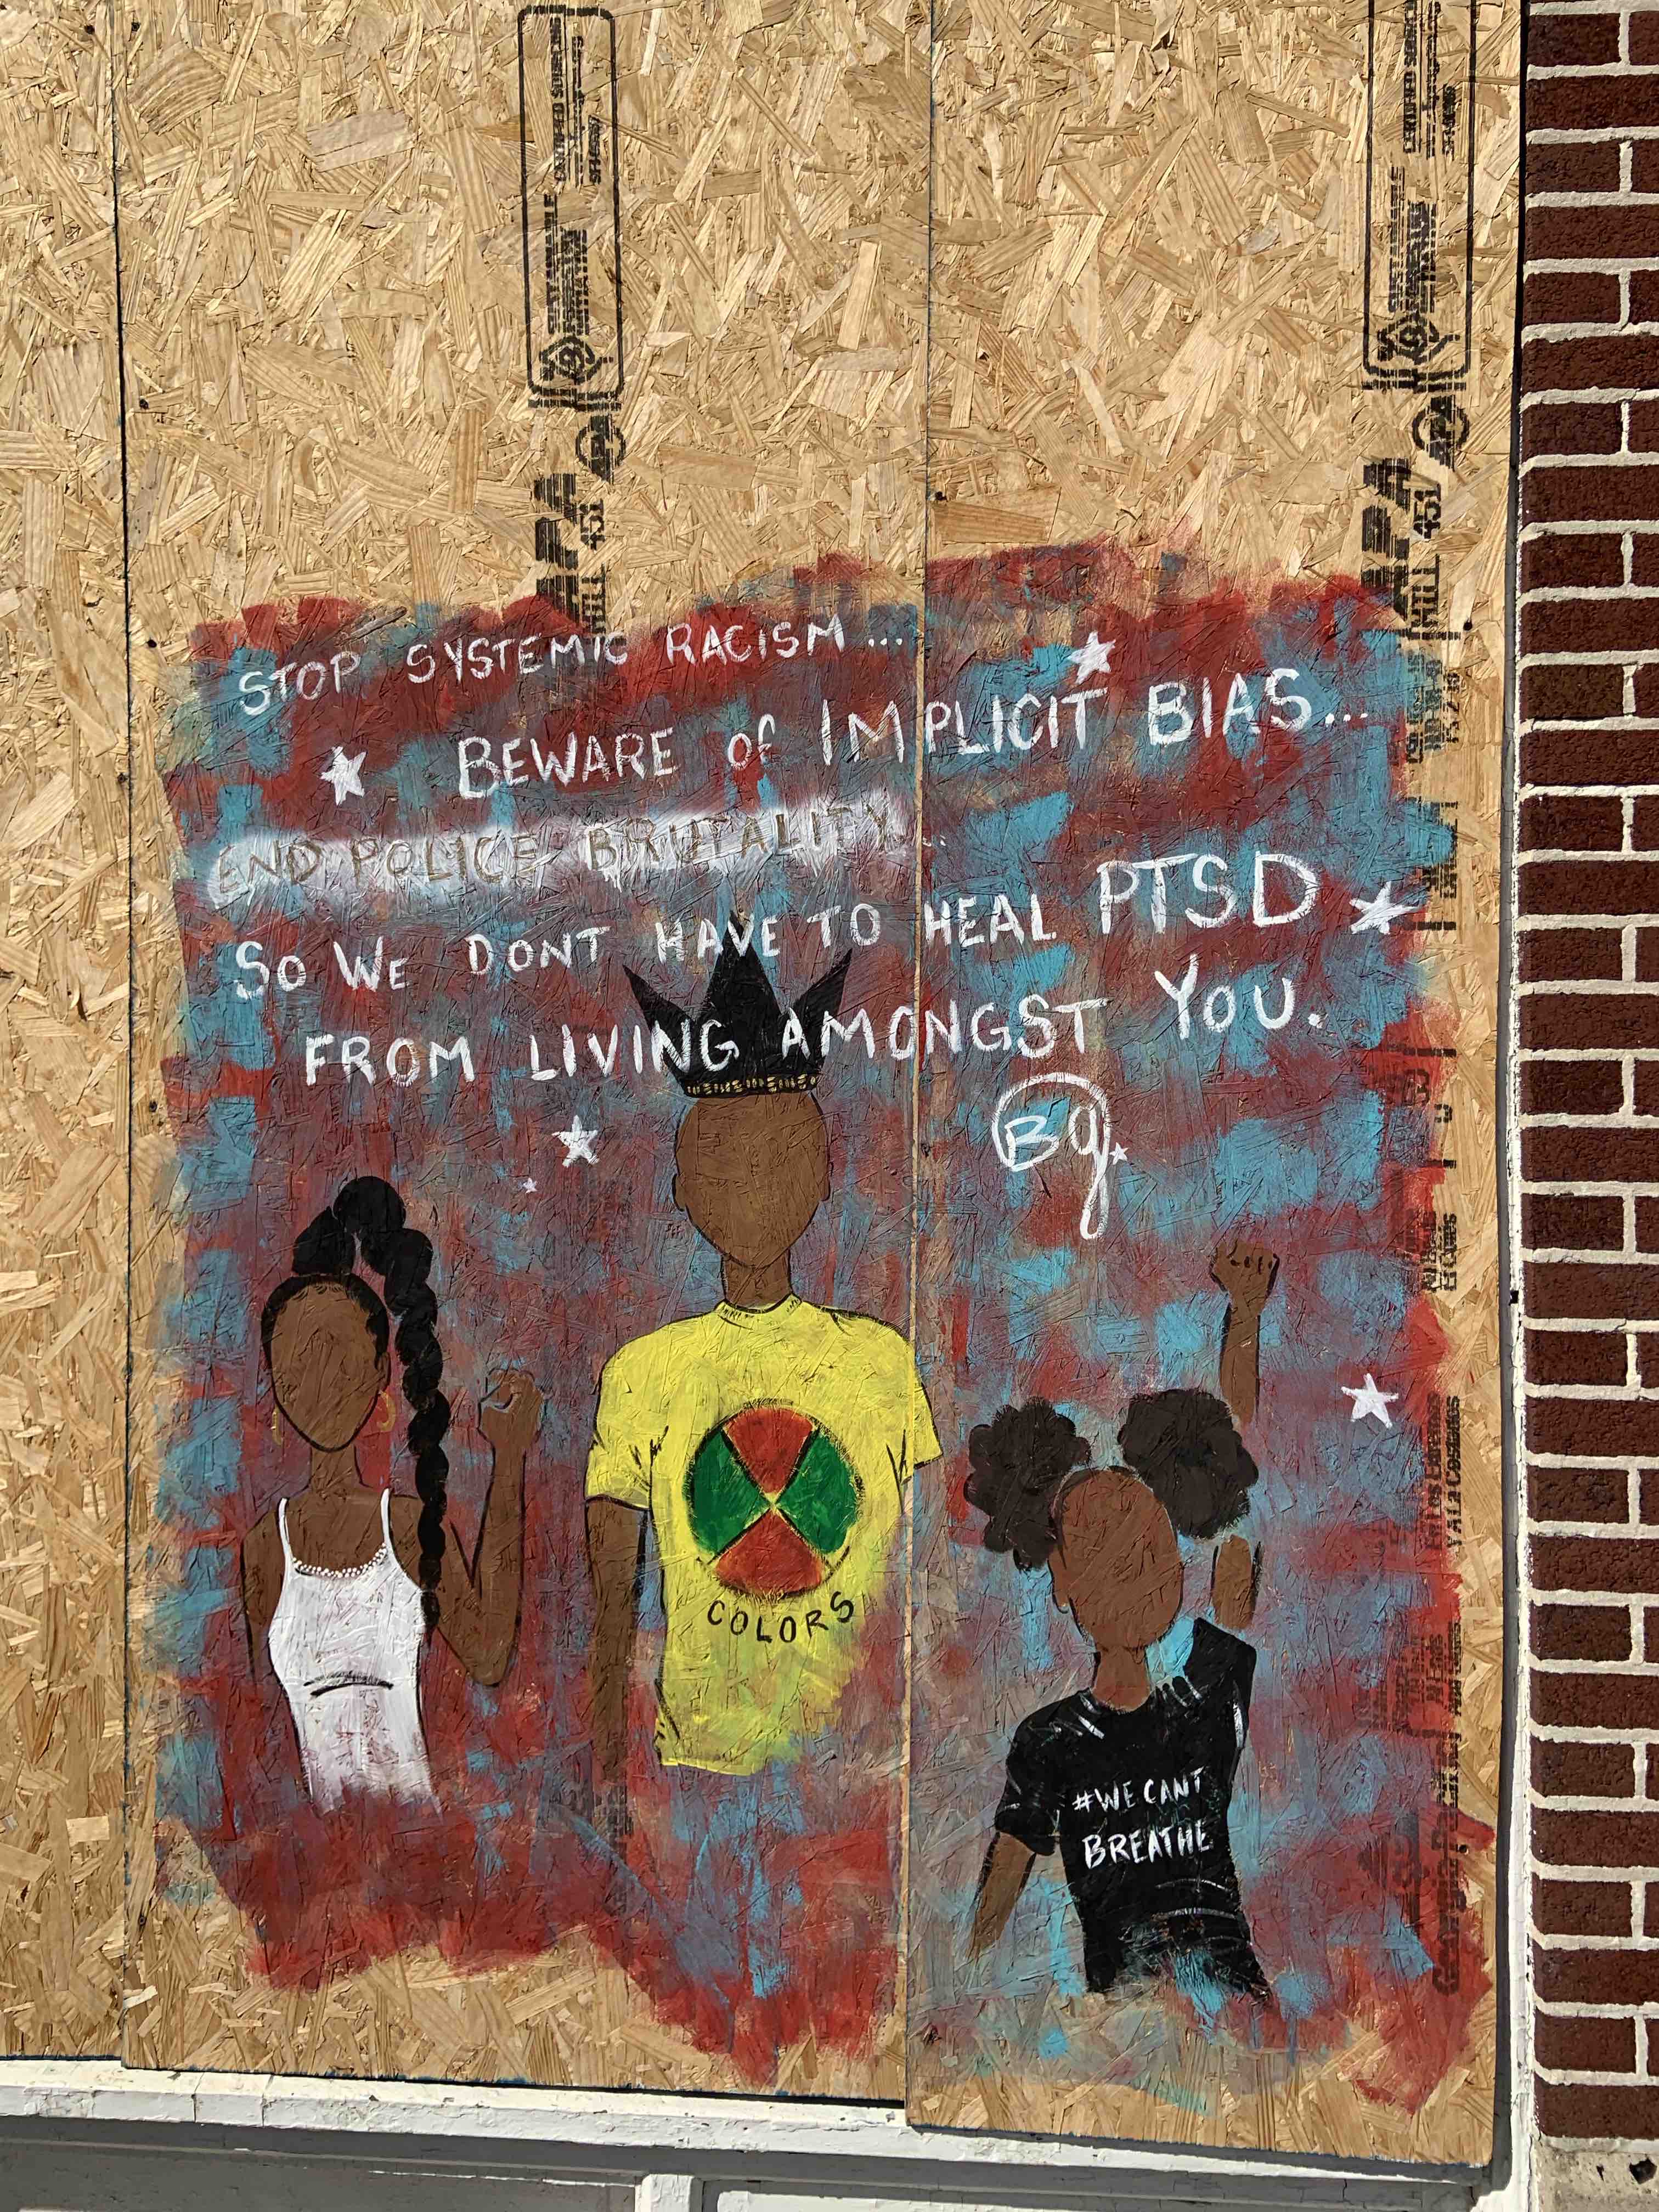 STOP SYSTEMIC RACISM...
BEWARE OF IMPLICIT BIAS...
END POLICE BRUTALITY...
SO WE DONT HAVE TO HEAL PTSD
FROM LIVING AMONGST YOU.
BG
COLORS
#WE CANT
BREATHE
APA
MILL 451
APA
MILL 451